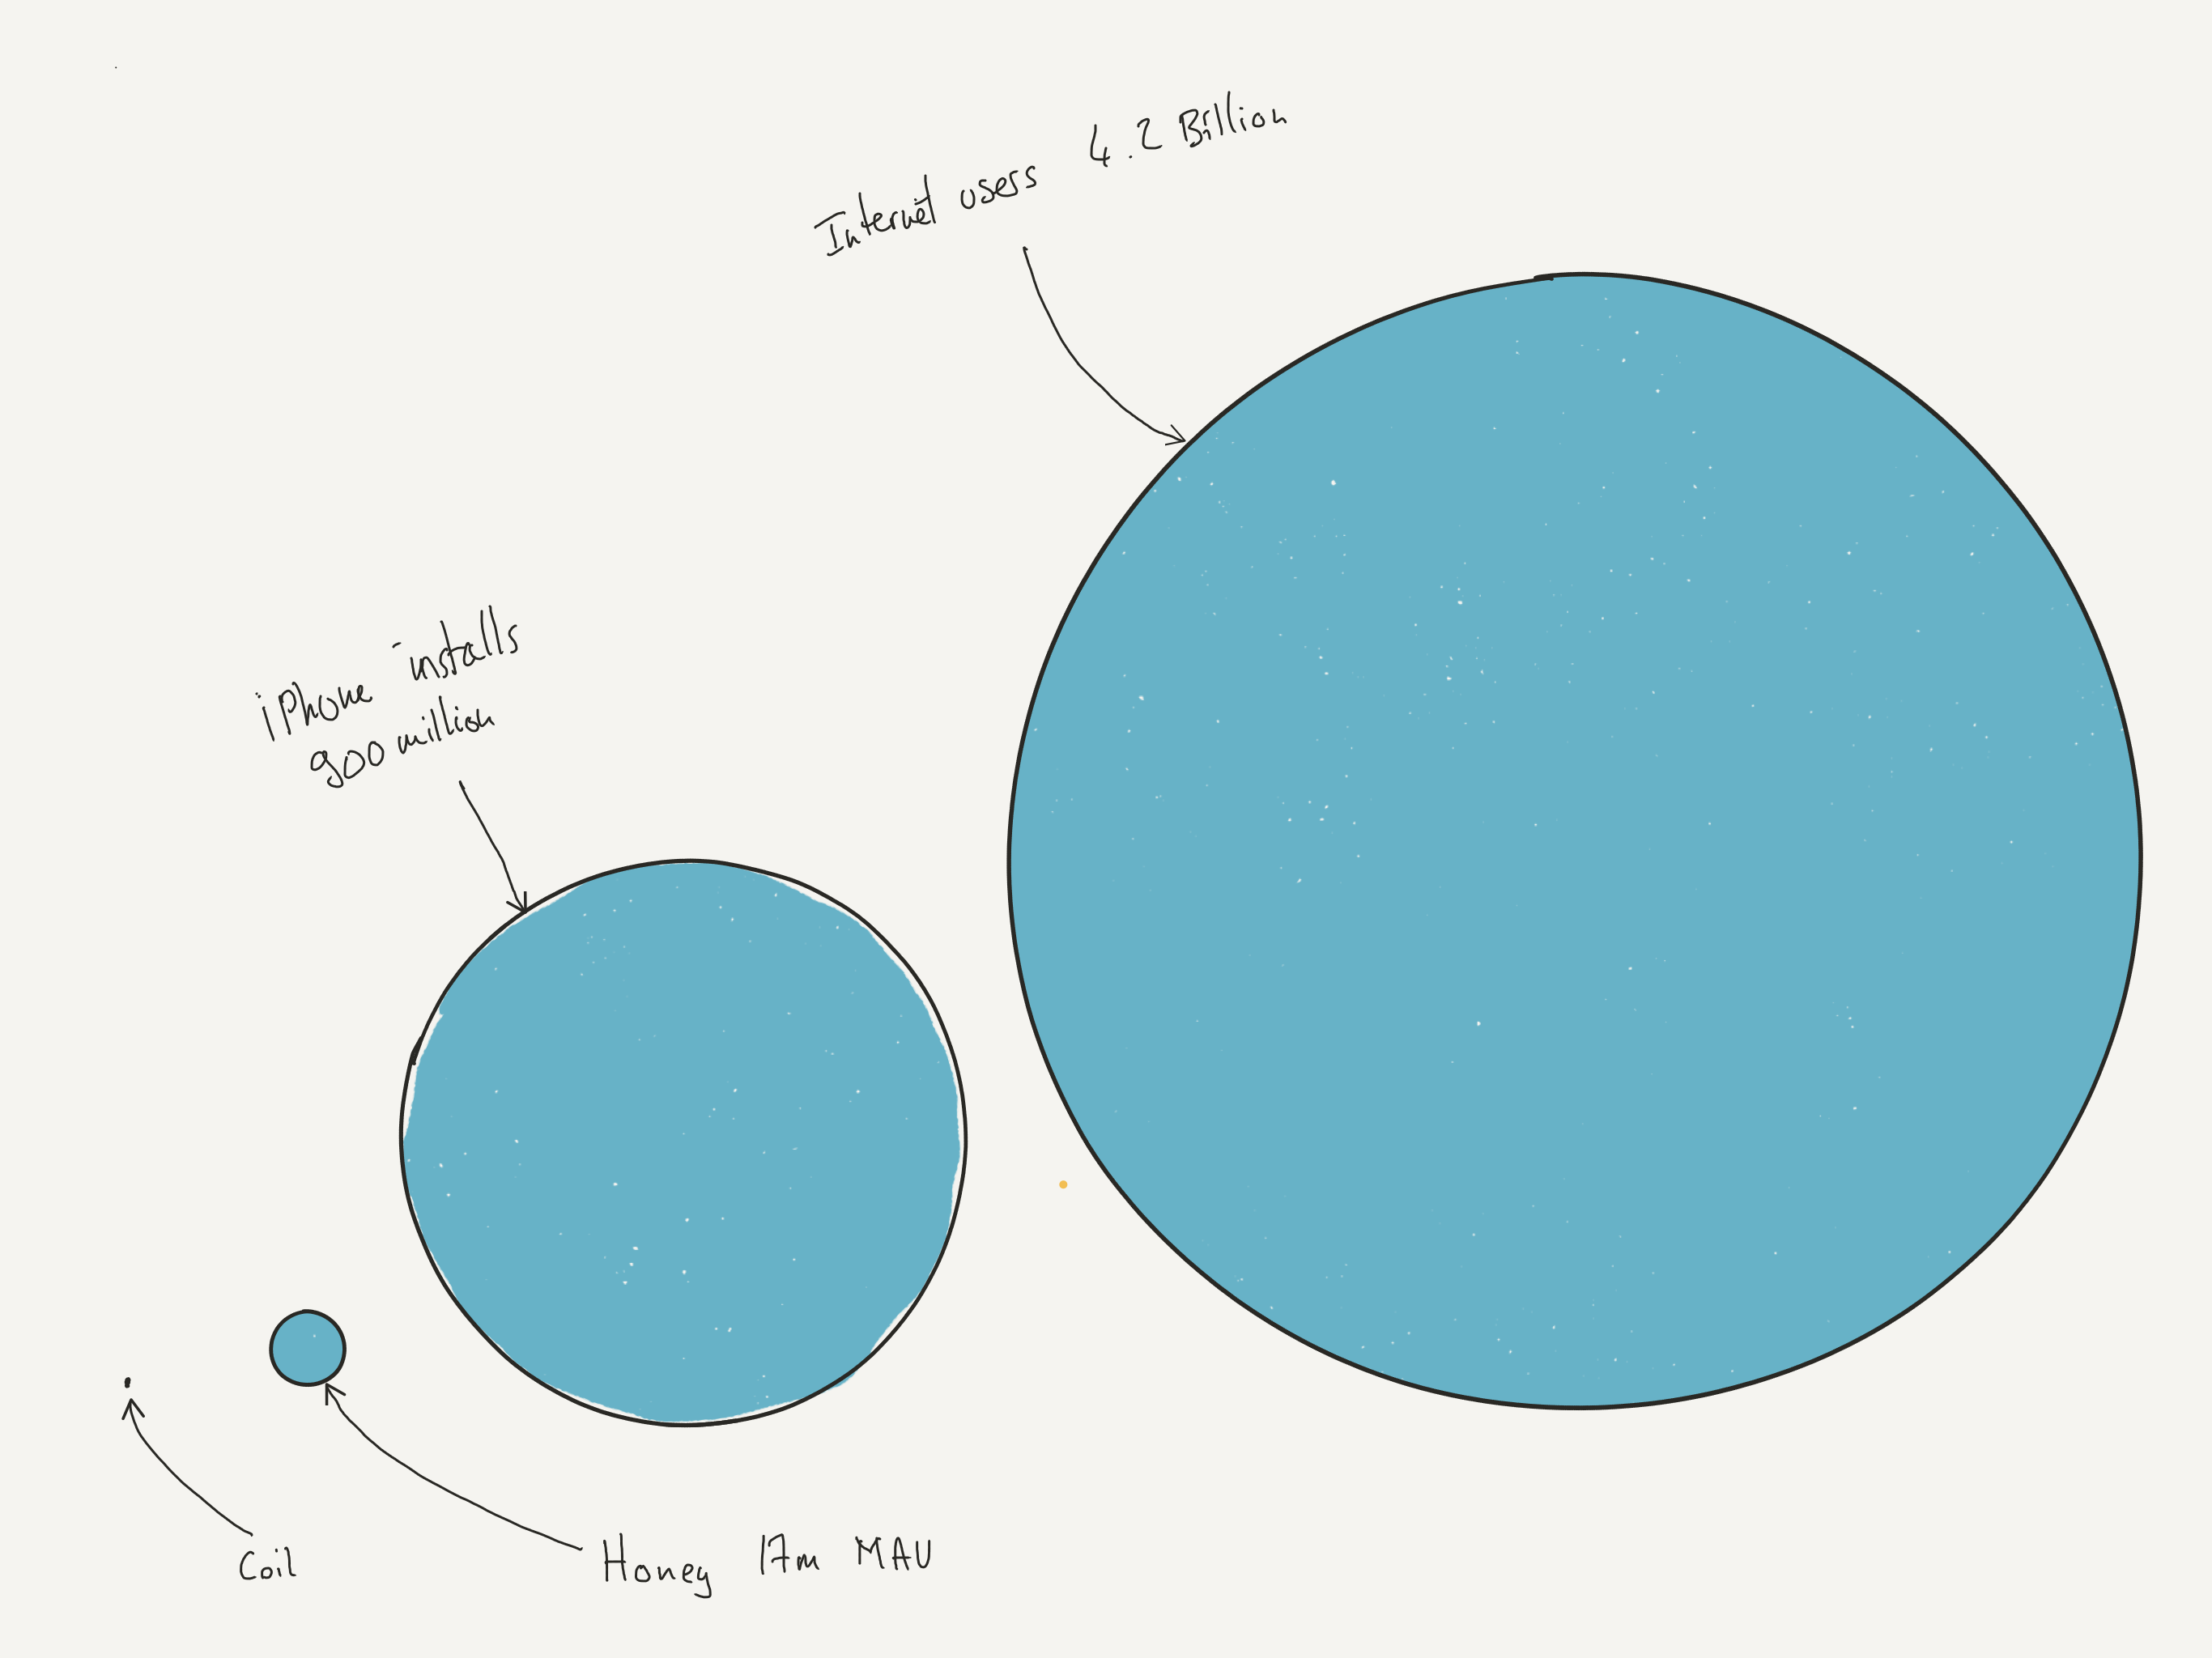 Internet users 4.2 Billion
iPhone installs
900 million
Coil
Honey 17m MAU